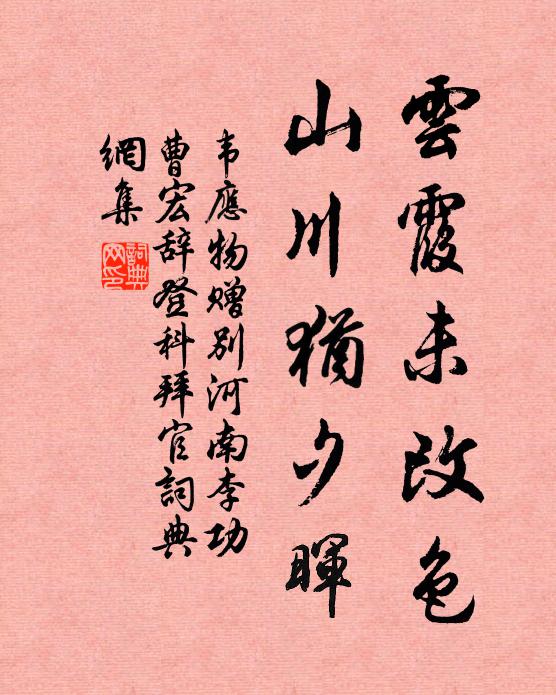 雲霞未改色
山川猶夕暉
韦應物赠别河南李功
曹宏辞登科拜官詞典
網集
詞典
网印